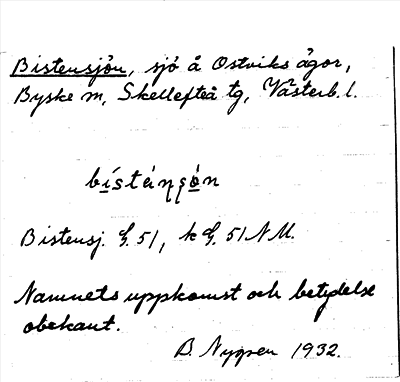 Bistensjön, sjö å Ostviks ägor,
Byske sn, Skellefteå tg, Västerb. l.
bístánsòn
Bistensj. G. 51, k G. 51 N M.
Namnets uppkomst och betydelse
obekant.
B. Nygren 1932.